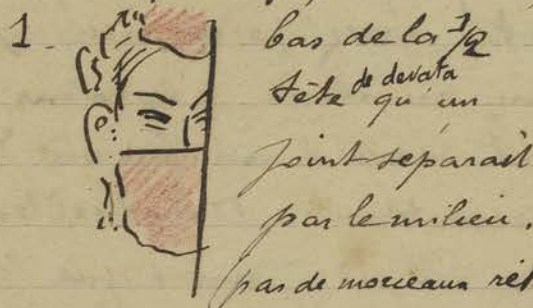 1. bas de la 1/2
tête de devata qu'un
joint séparait
par le milieu.
pas de morceaux